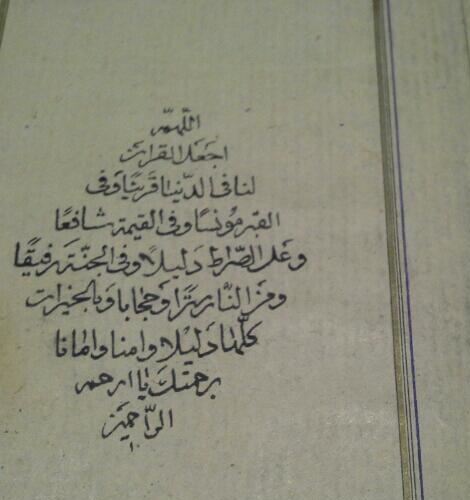 اللهم
اجعل القران
لنا فى الدنيا قرينا و فى
القبر مونسا و فى القيمة شافعا
و على الصراط دليلا و فى الجنة رفيقا
و من النار سترا و حجابا و بالخيرات
كلها دليلا و امنا و امانا
برحمتك يا ارحم
الراحمين